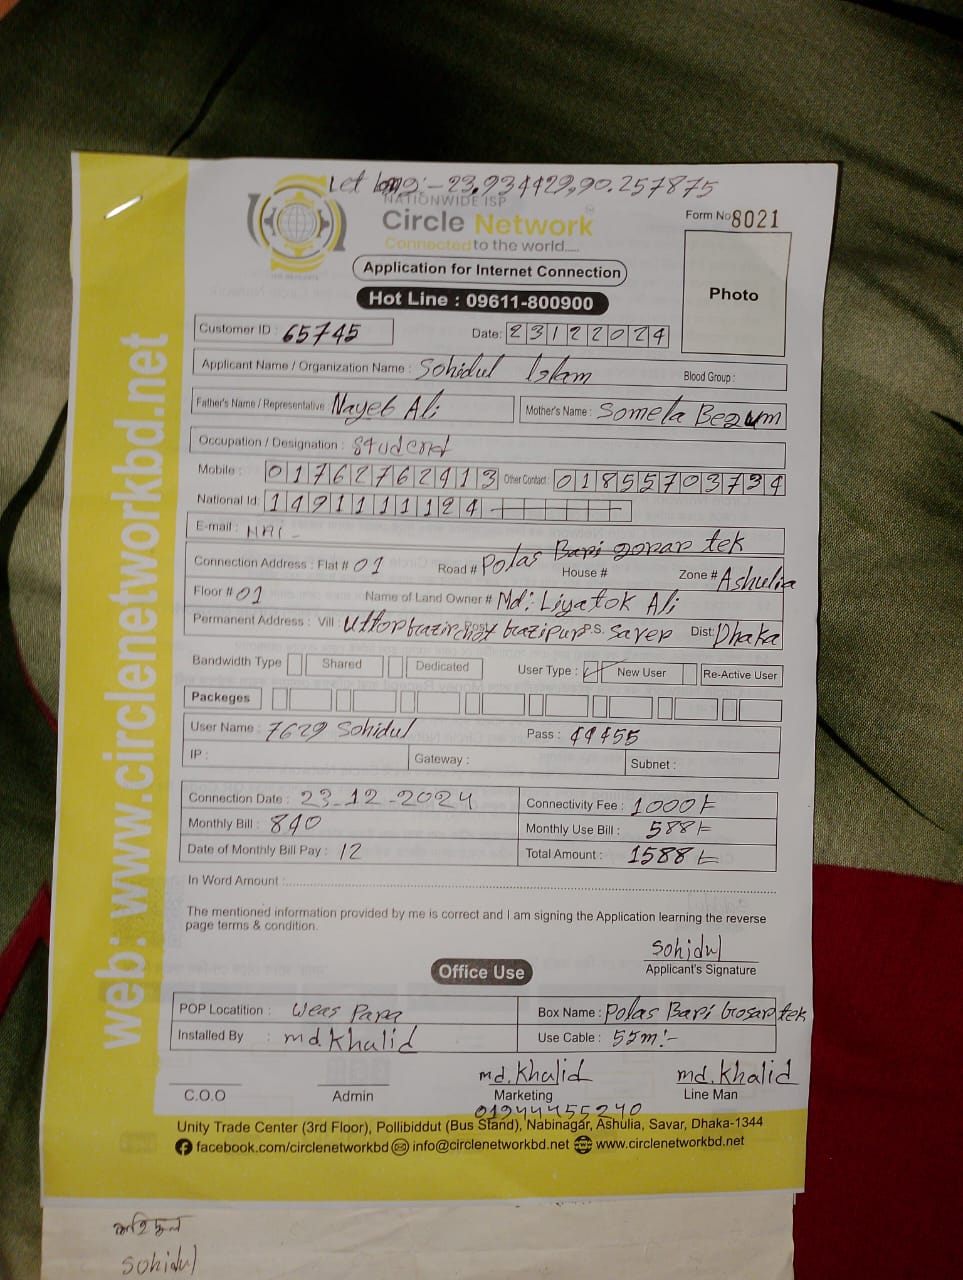 Let long:- 23.934429,90.257875
NATIONWIDE ISP
Circle Network
Connected to the world.....
Form No 8021
Application for Internet Connection
Photo
Hot Line : 09611-800900
Customer ID : 65745 Date: 23122024
Applicant Name / Organization Name : Sohidul Islam Blood Group :
Father's Name / Representative Nayeb Ali Mother's Name : Somela Begum
Occupation / Designation : Studenet
Mobile : 01762762413 Other Contact : 01855703734
National Id: 1491111124
E-mail : NAI -
Connection Address : Flat # 01 Road # Polas Bari gorar tek House # Zone # Ashulia
Floor # 01 Name of Land Owner # Md: Liyatok Ali
Permanent Address : Vill : Post P.S. Saver Dist: Dhaka
Bandwidth Type Shared Dedicated User Type : New User Re-Active User
Packeges
User Name : 7629 Sohidul Pass : 44455
IP : Gateway : Subnet :
Connection Date : 23-12-2024 Connectivity Fee : 1000/-
Monthly Bill : 840 Monthly Use Bill : 588/-
Date of Monthly Bill Pay : 12 Total Amount : 1588/-
In Word Amount :
The mentioned information provided by me is correct and I am signing the Application learning the reverse
page terms & condition.
Sohidul
Applicant's Signature
Office Use
POP Locatition : Weas Para Box Name : Polas Bari Gosar tek
Installed By : md.Khalid Use Cable : 55m!-
md.Khalid md.Khalid
C.O.O Admin Marketing Line Man
01944455240
Unity Trade Center (3rd Floor), Pollibiddut (Bus Stand), Nabinagar, Ashulia, Savar, Dhaka-1344
facebook.com/circlenetworkbd info@circlenetworkbd.net www.circlenetworkbd.net
web: www.circlenetworkbd.net
Sohidul